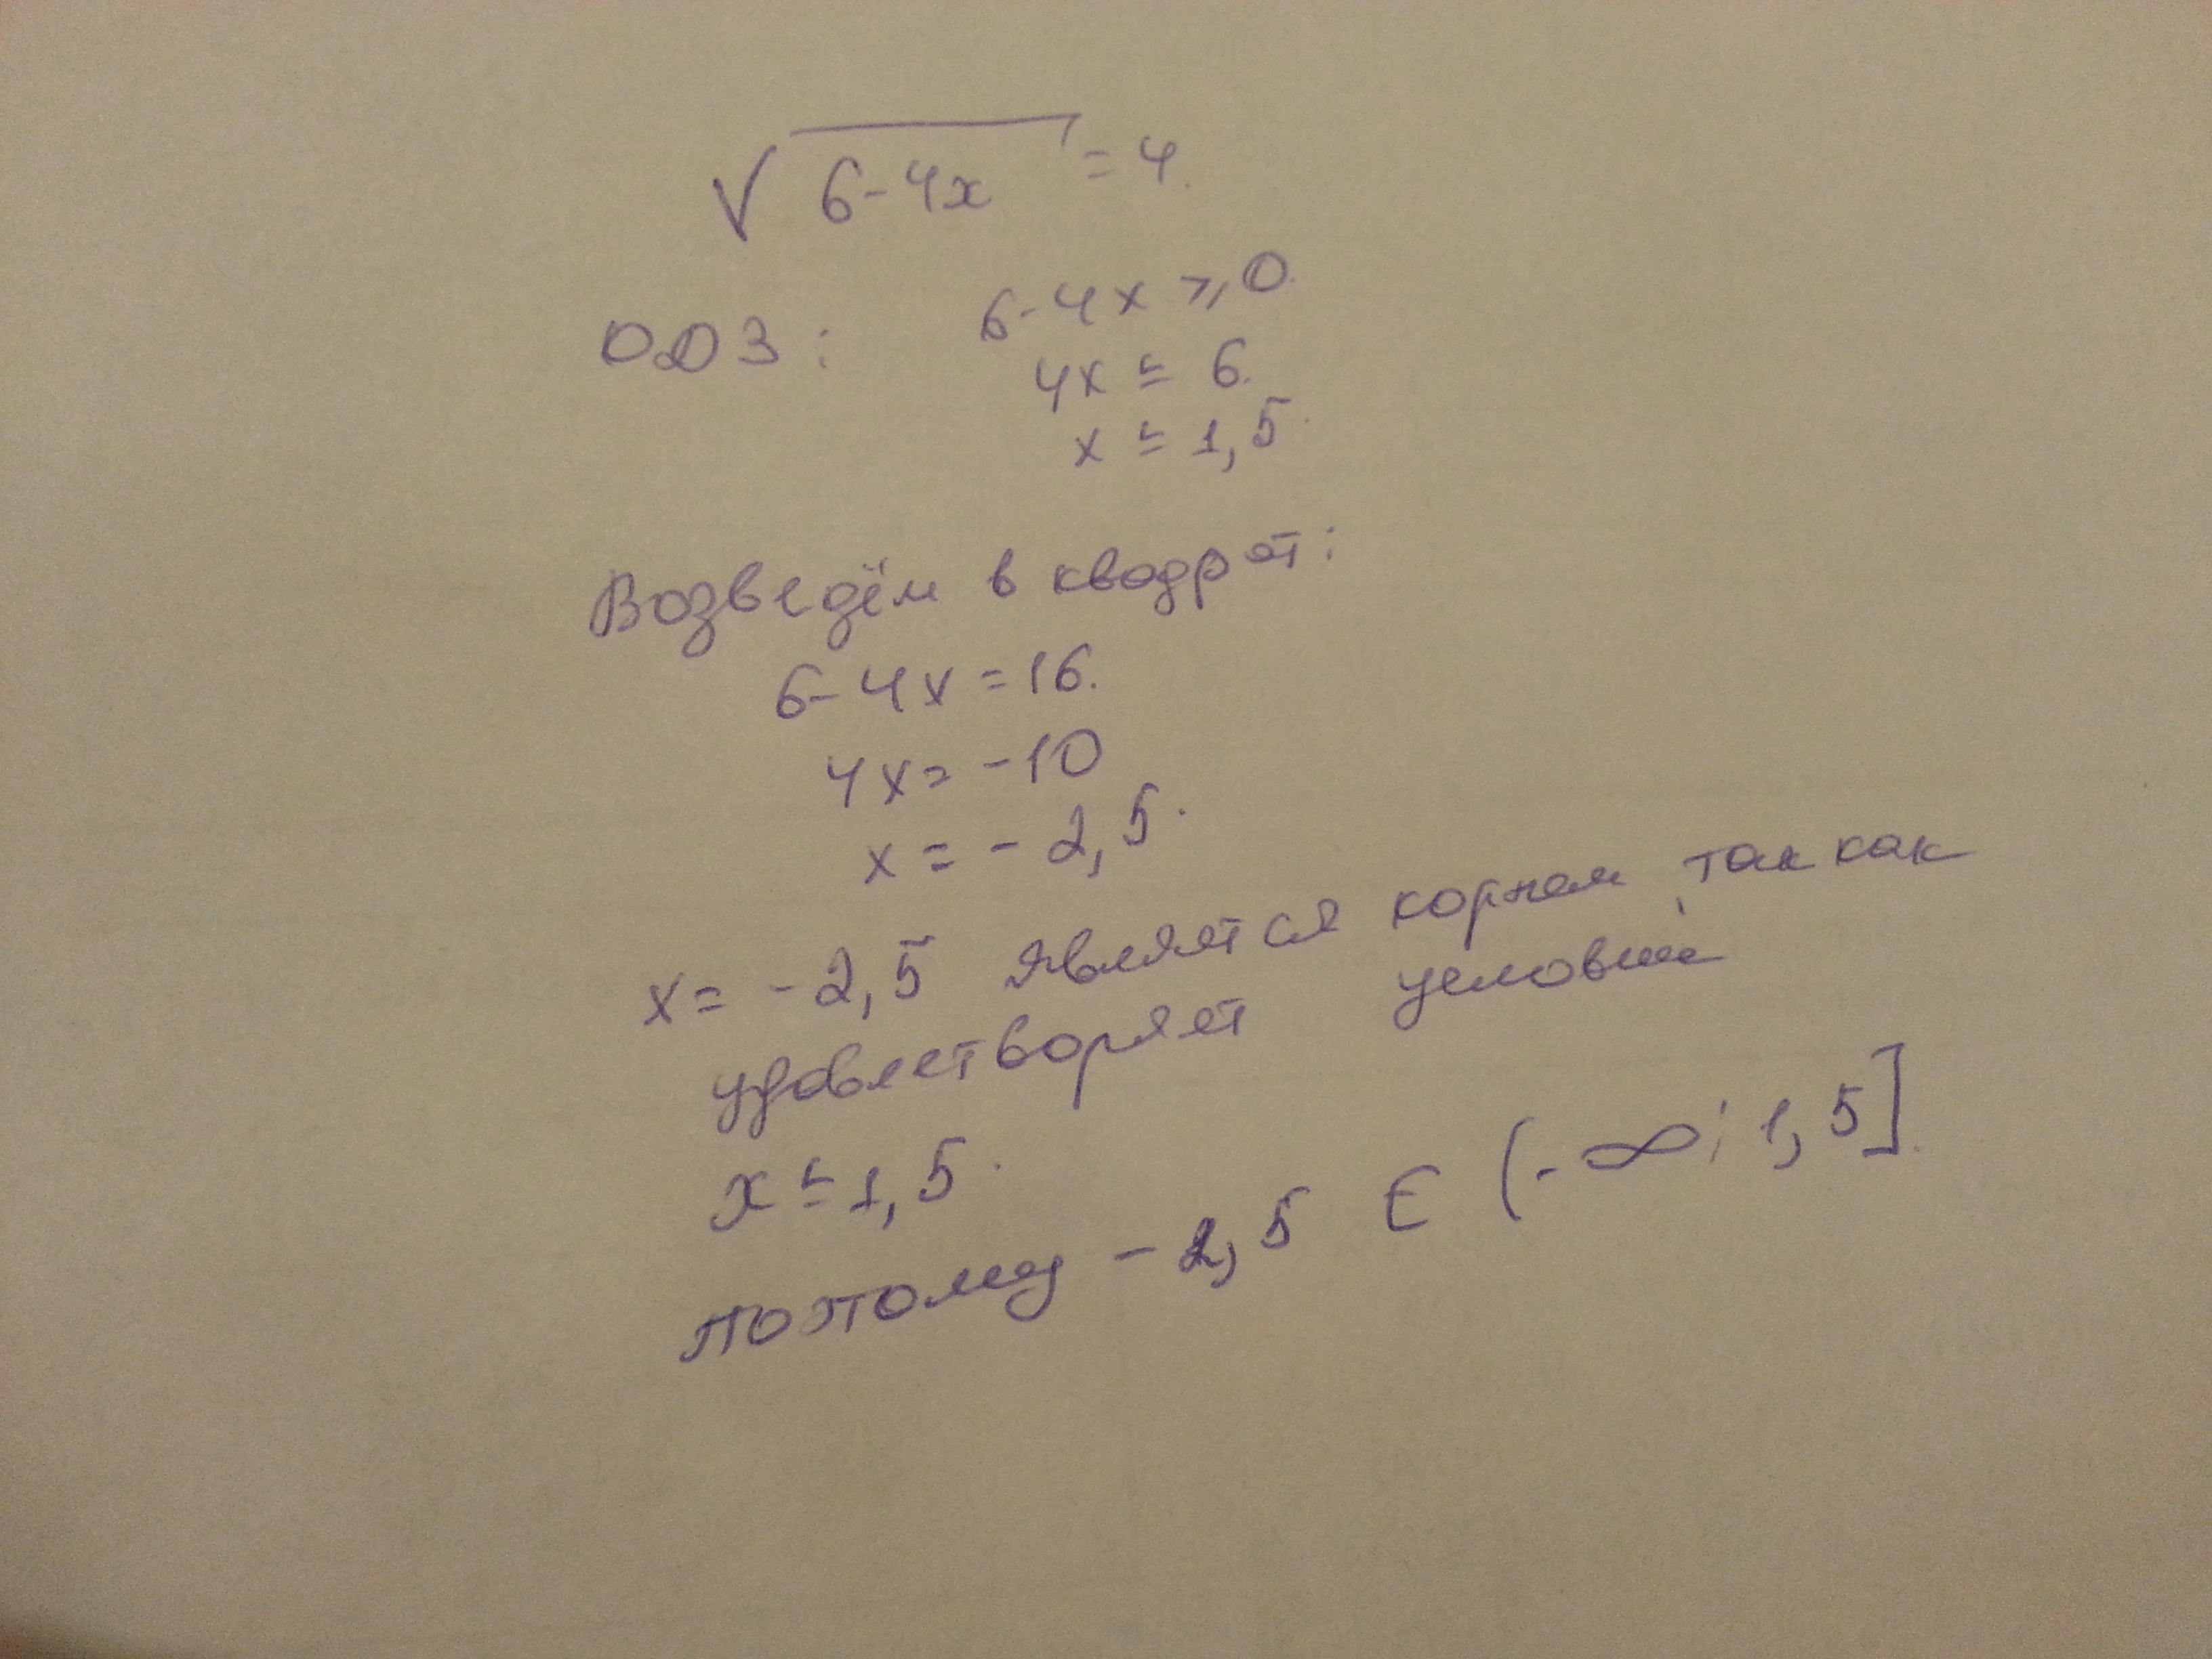 √6-4x = 4.
ОДЗ: 6-4x ⩾ 0.
4x ≤ 6.
x ≤ 1,5.
Возведём в квадрат:
6-4x = 16.
4x = -10
x = -2,5.
x = -2,5 является корнем, так как
удовлетворяет условию
x ≤ 1,5.
потому -2,5 ∈ (-∞; 1,5].